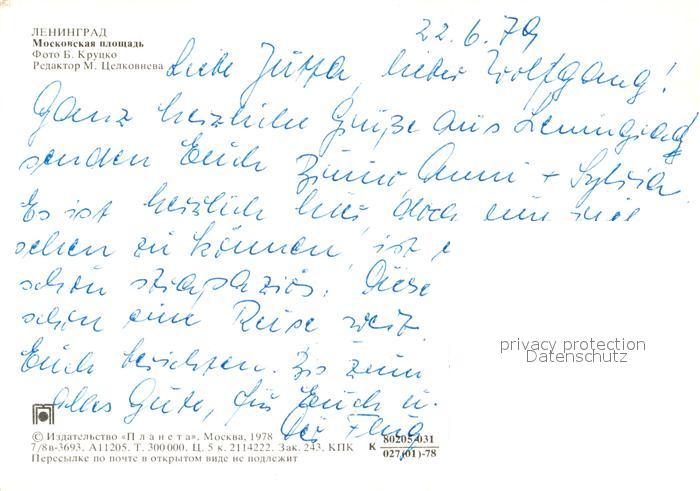 ЛЕНИНГРАД
Московская площадь
Фото Б. Круцко
Редактор М. Целковнева
22.6.79
Liebe Jutta, lieber Wolfgang!
Ganz herzliche Grüße aus Leningrad
senden Euch Anni + Sylvia
Es ist herrlich hier, doch um viel
sehen zu können, ist
schön strapaziös. Diese
schon eine Reise wert
Euch berichten. Bis zum
alles Gute, für Euch u.
der Flug
privacy protection
Datenschutz
© Издательство «Планета». Москва, 1978
7/8в-3693. А11205. Т. 300000. Ц. 5 к. 2114222. Зак. 243. КПК
К 80205-031
027(01)-78
Пересылке по почте в открытом виде не подлежит